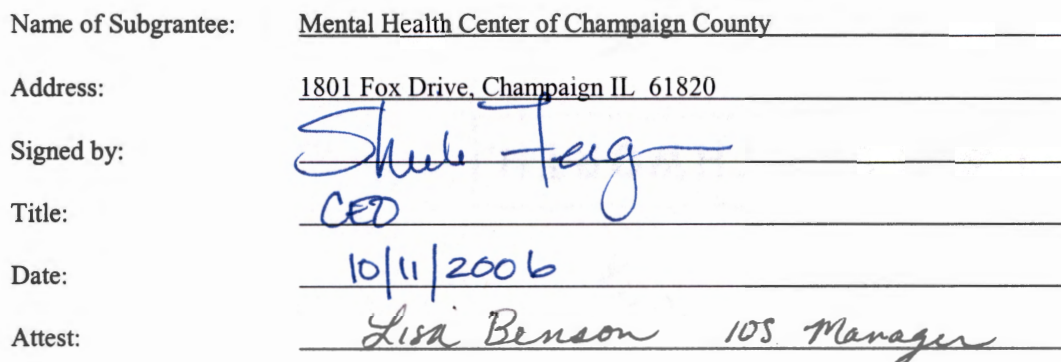 Name of Subgrantee: Mental Health Center of Champaign County
Address: 1801 Fox Drive, Champaign IL 61820
Signed by:
Title: CEO
Date: 10/11/2006
Attest: Lisa Benson IOS Manager